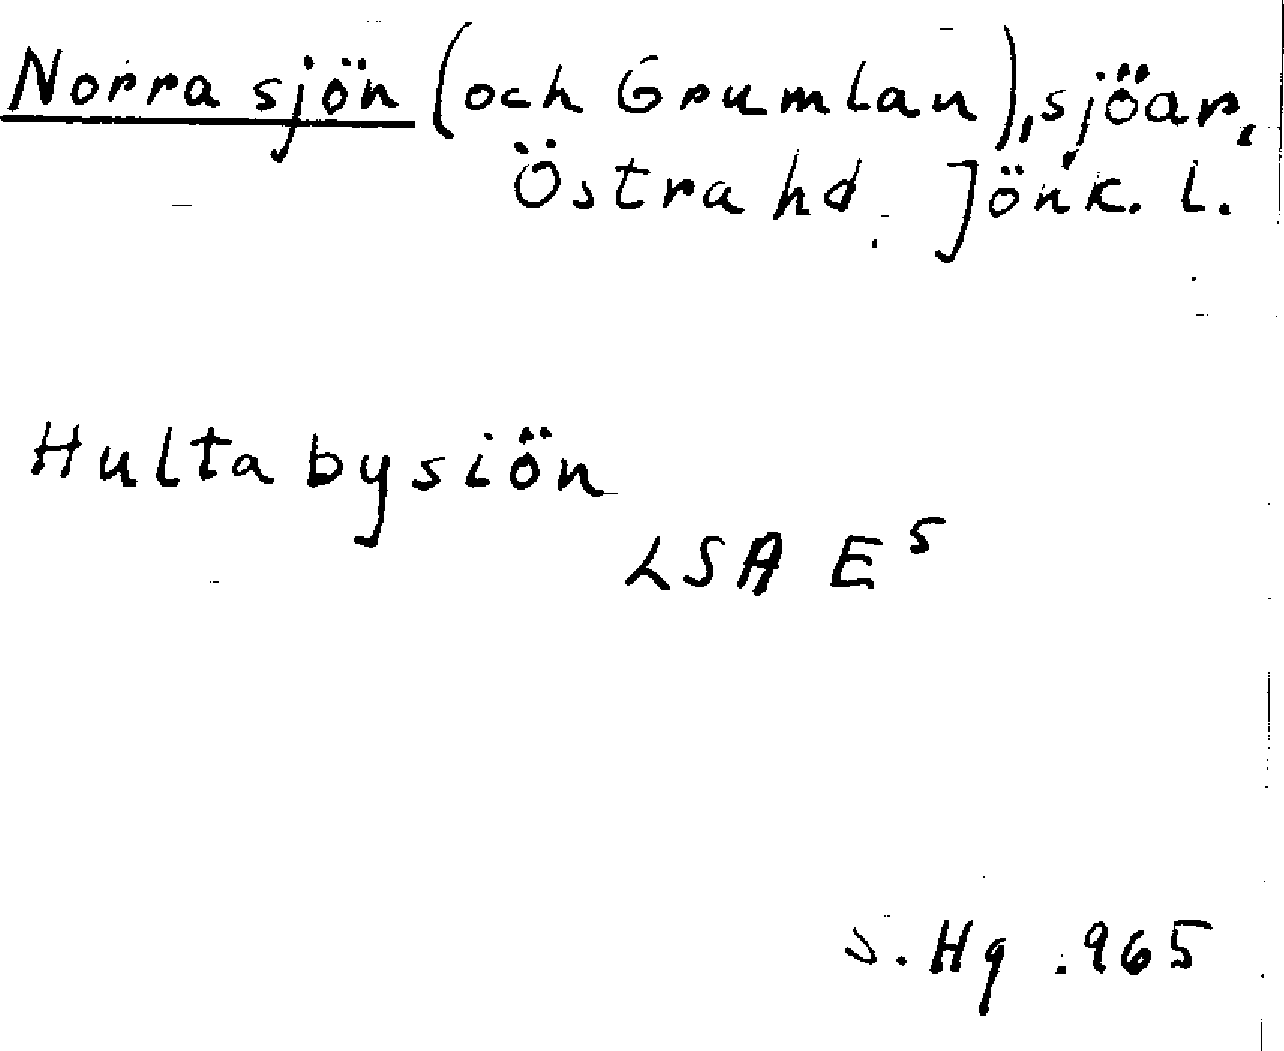 Norra sjön (och Grumlan), sjöar,
Östra hd. Jönk. l.
Hultabysiön
LSA E⁵
S. Hg .965